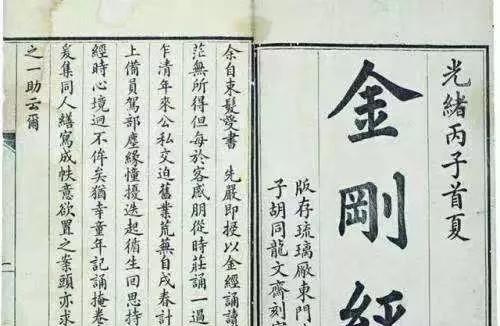 光緒丙子首夏
金剛經
版存琉璃厰東門
子胡同龍文齋刻
余自束髮受書 先嚴即授以金經誦讀
茫無所得但每於客感朋從時莊誦一過
乍清年來公私交迫舊業荒蕪自戌春計
上備員駕部塵緣憧擾迭起循生回思持
經時心境迥不侔矣猶幸童年記誦掩卷
爰集同人繕寫成帙意欲置之案頭亦求
之一助云爾